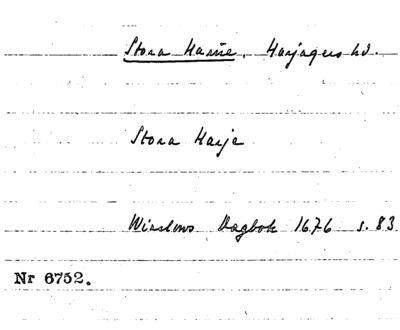 Stora Harrie. Harjagers hd.
Stora Harje
Winslows Dagbok 1676 s. 83
Nr 6752.